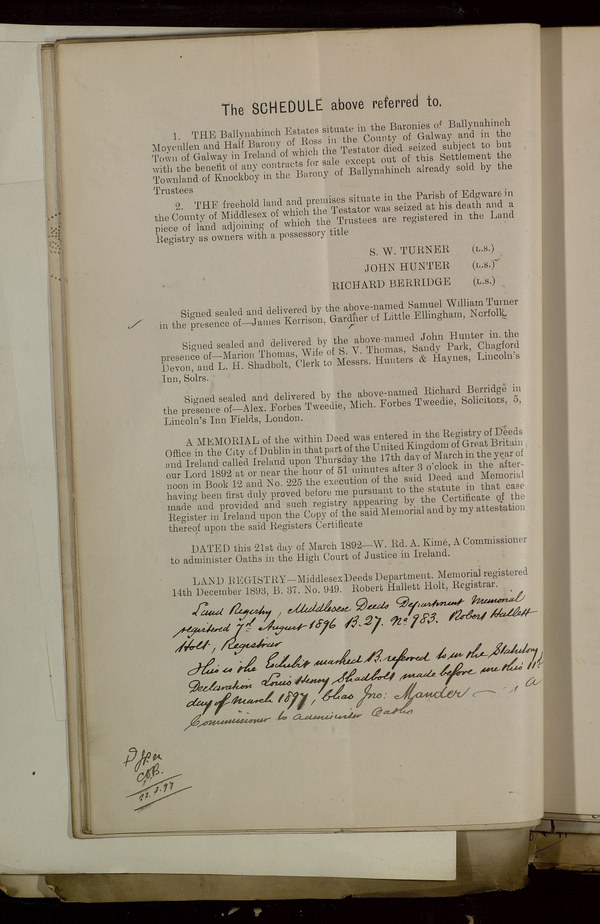 The SCHEDULE above referred to.
1. THE Ballynahinch Estates situate in the Baronies of Ballynahinch
Moycullen and Half Barony of Ross in the County of Galway and in the
Town of Galway in Ireland of which the Testator died seized subject to but
with the benefit of any contracts for sale except out of this Settlement the
Townland of Knockboy in the Barony of Ballynahinch already sold by the
Trustees
2. THE freehold land and premises situate in the Parish of Edgware in
the County of Middlesex of which the Testator was seized at his death and a
piece of land adjoining of which the Trustees are registered in the Land
Registry as owners with a possessory title
S. W. TURNER (L.S.)
JOHN HUNTER (L.S.)
RICHARD BERRIDGE (L.S.)
Signed sealed and delivered by the above-named Samuel William Turner
in the presence of—James Kerrison, Gardner of Little Ellingham, Norfolk.
Signed sealed and delivered by the above-named John Hunter in the
presence of—Marion Thomas, Wife of S. V. Thomas, Sandy Park, Chagford
Devon, and L. H. Shadbolt, Clerk to Messrs. Hunters & Haynes, Lincoln's
Inn, Solrs.
Signed sealed and delivered by the above-named Richard Berridge in
the presence of—Alex. Forbes Tweedie, Mich. Forbes Tweedie, Solicitors, 5,
Lincoln's Inn Fields, London.
A MEMORIAL of the within Deed was entered in the Registry of Deeds
Office in the City of Dublin in that part of the United Kingdom of Great Britain
and Ireland called Ireland upon Thursday the 17th day of March in the year of
our Lord 1892 at or near the hour of 51 minutes after 3 o'clock in the after-
noon in Book 12 and No. 225 the execution of the said Deed and Memorial
having been first duly proved before me pursuant to the statute in that case
made and provided and such registry appearing by the Certificate of the
Register in Ireland upon the Copy of the said Memorial and by my attestation
thereof upon the said Registers Certificate
DATED this 21st day of March 1892—W. Rd. A. Kime, A Commissioner
to administer Oaths in the High Court of Justice in Ireland.
LAND REGISTRY—Middlesex Deeds Department. Memorial registered
14th December 1893, B. 37. No. 949. Robert Hallett Holt, Registrar.
Land Registry, Middlesex Deeds Department Memorial
registered 7th August 1896 B.27. No 983. Robert Hallett
Holt, Registrar
This is the Exhibit marked B. referred to in the Statutory
Declaration Louis Henry Shadbolt made before me this 11th
day of March 1897, Chas Jno: Mander — , A
Commissioner to administer Oaths
C.B.
22.3.97